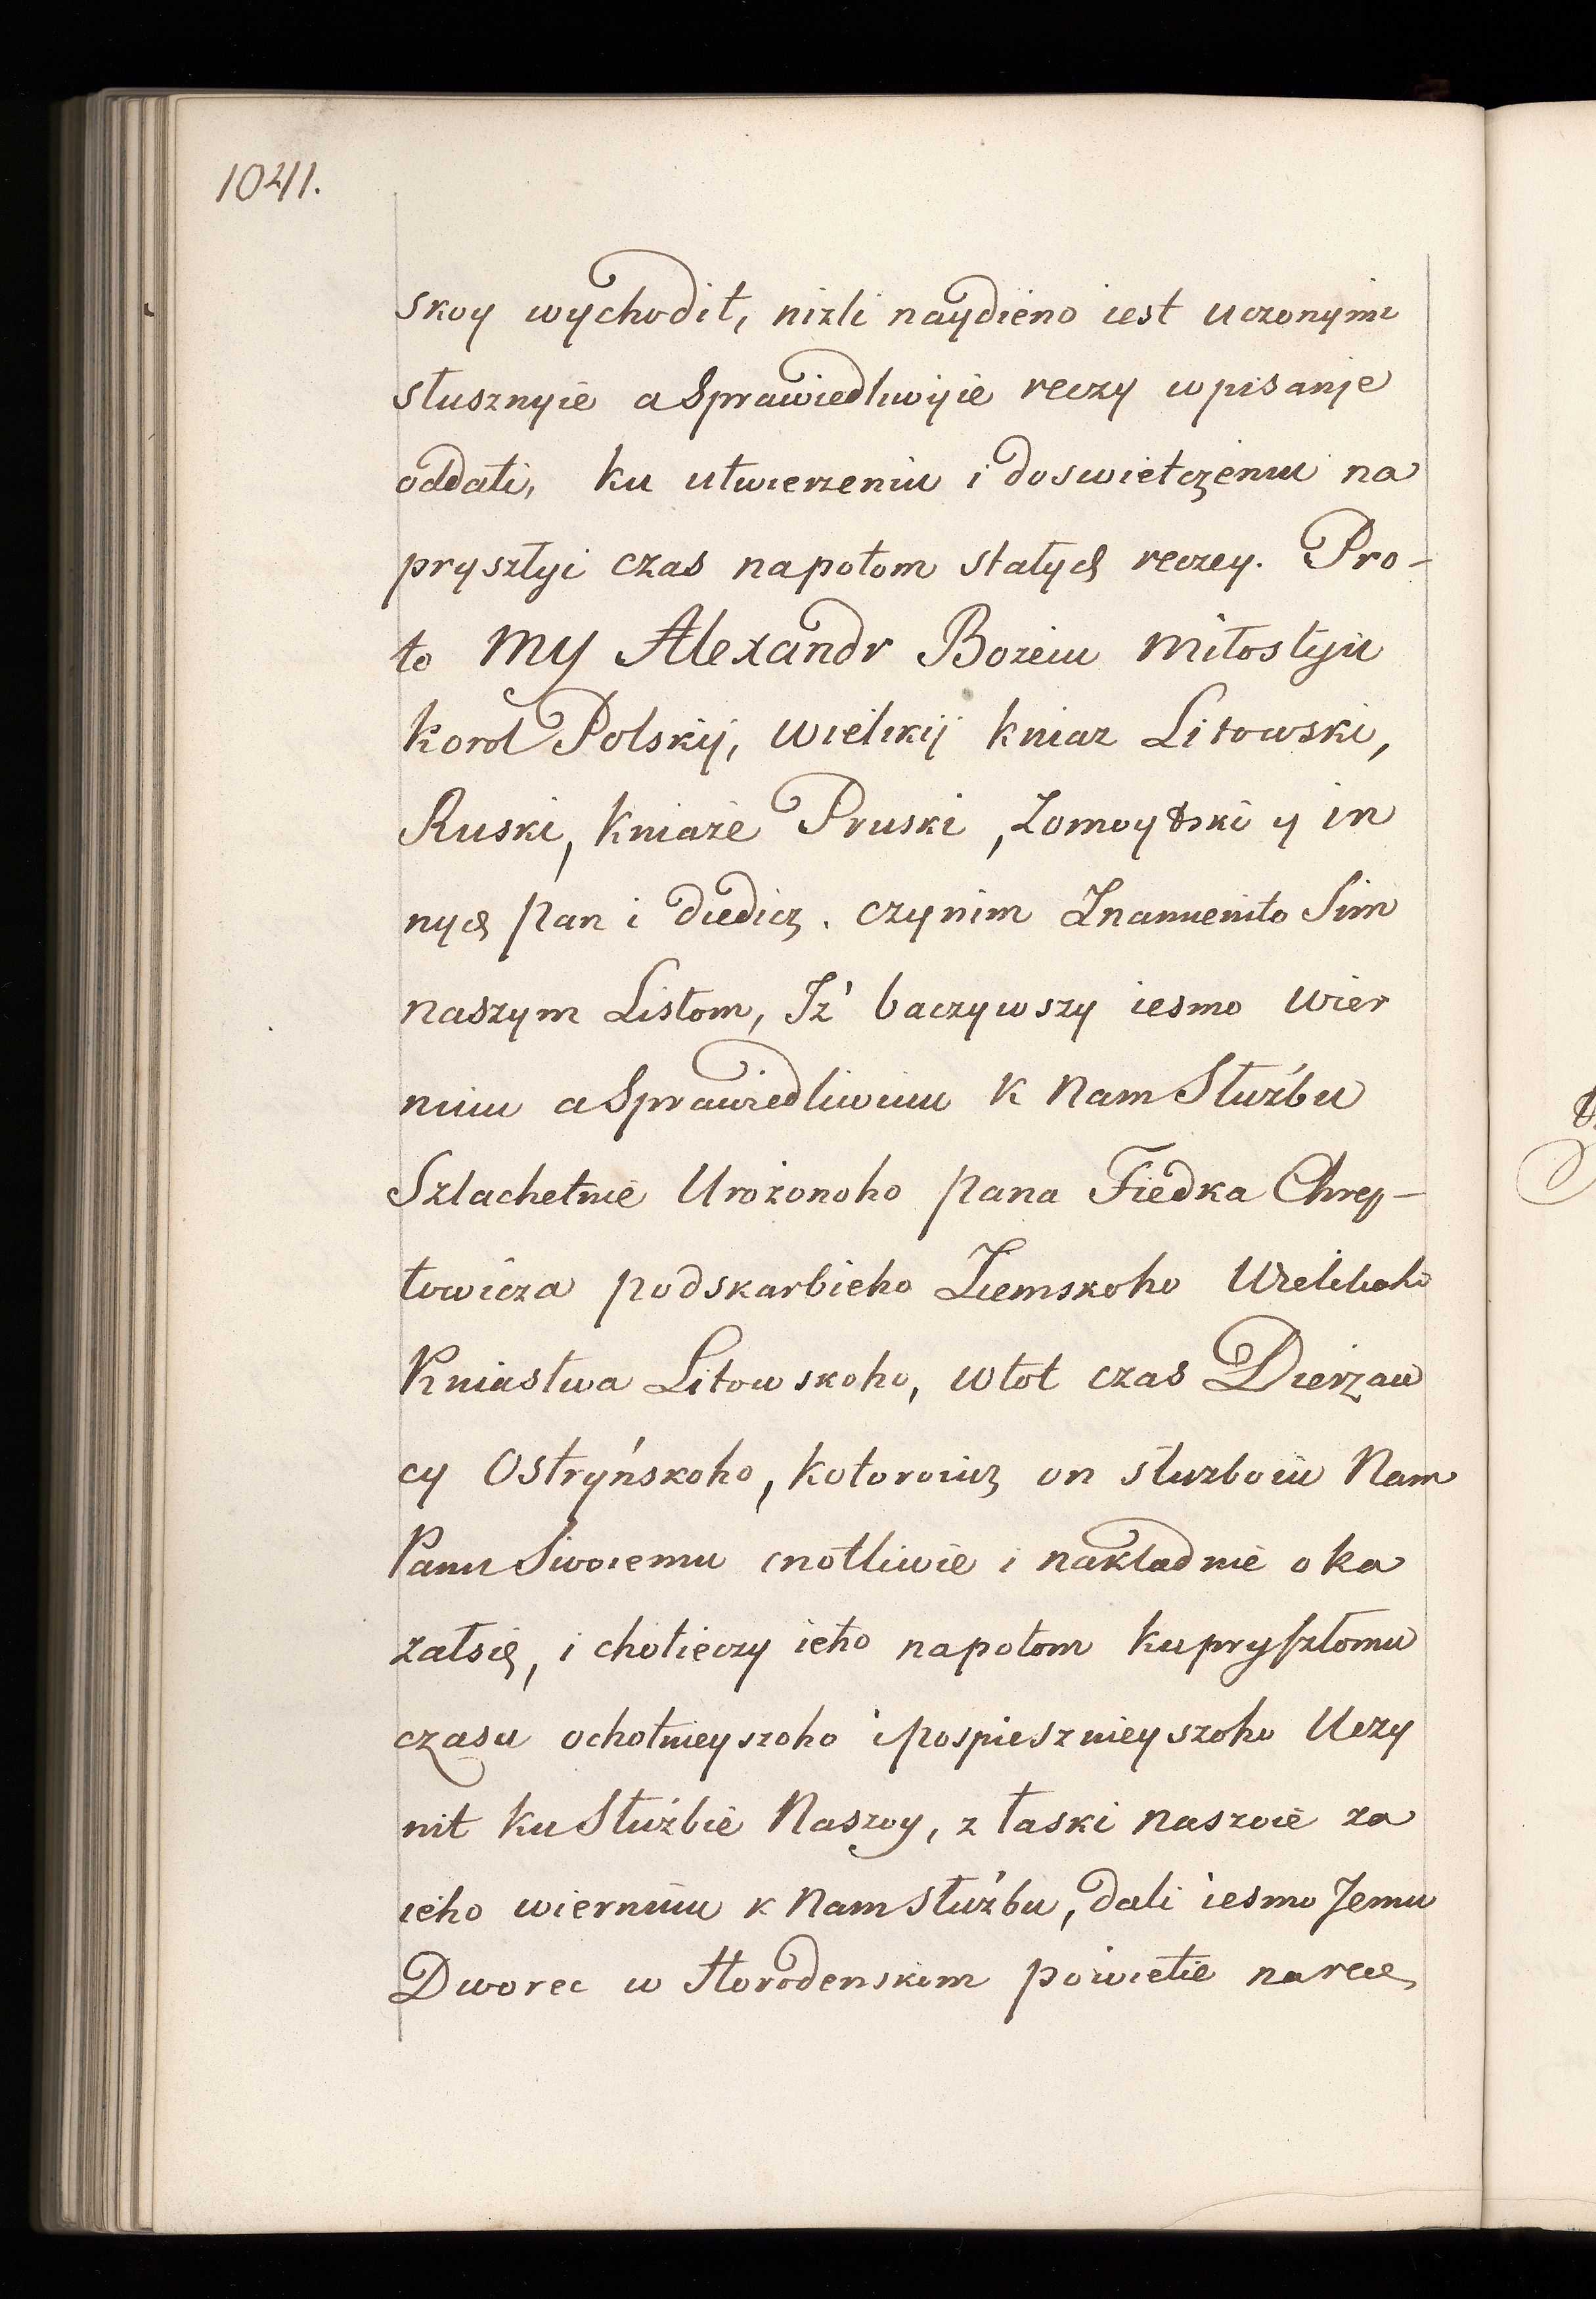 1041.
skoy wychodił, nizli naydieno iest uczonymi
słusznyie a Sprawiedliwyie reczy w pisanje
oddati, ku utwierzeniu i doswietczeniu na
pryszłyi czas napotom stałych reczey. Pro-
to My Alexandr Bozeiu miłostyiu
korol Polskij, wielikij kniaz Litowski,
Ruski, kniaże Pruski, Zomoytski y in
nych pan i diedicz. czynim Znamenito Sim
naszym Listom, Iż baczywszy iesmo wier
nuiu a Sprawiedliwuiu k nam Służbu
Szlachetnie Urożonoho pana Fiedka Chrep-
towicza podskarbieho Ziemskoho Wielikoho
Kniastwa Litowskoho, wtot czas Dierzaw
cy Ostryńskoho, kotoroiuz on służboiu Nam
Panu Swoiemu cnotliwie i nakladnie oka
załsię, i chotieczy ieho napotom ku pryszłomu
czasu ochotnieyszoho i pospiesznieyszoho Uczy
nit ku Służbie Naszoy, z łaski naszoie za
ieho wiernuiu k Nam służbu, dali iesmo Jemu
Dworec w Horodenskom powietie na rece